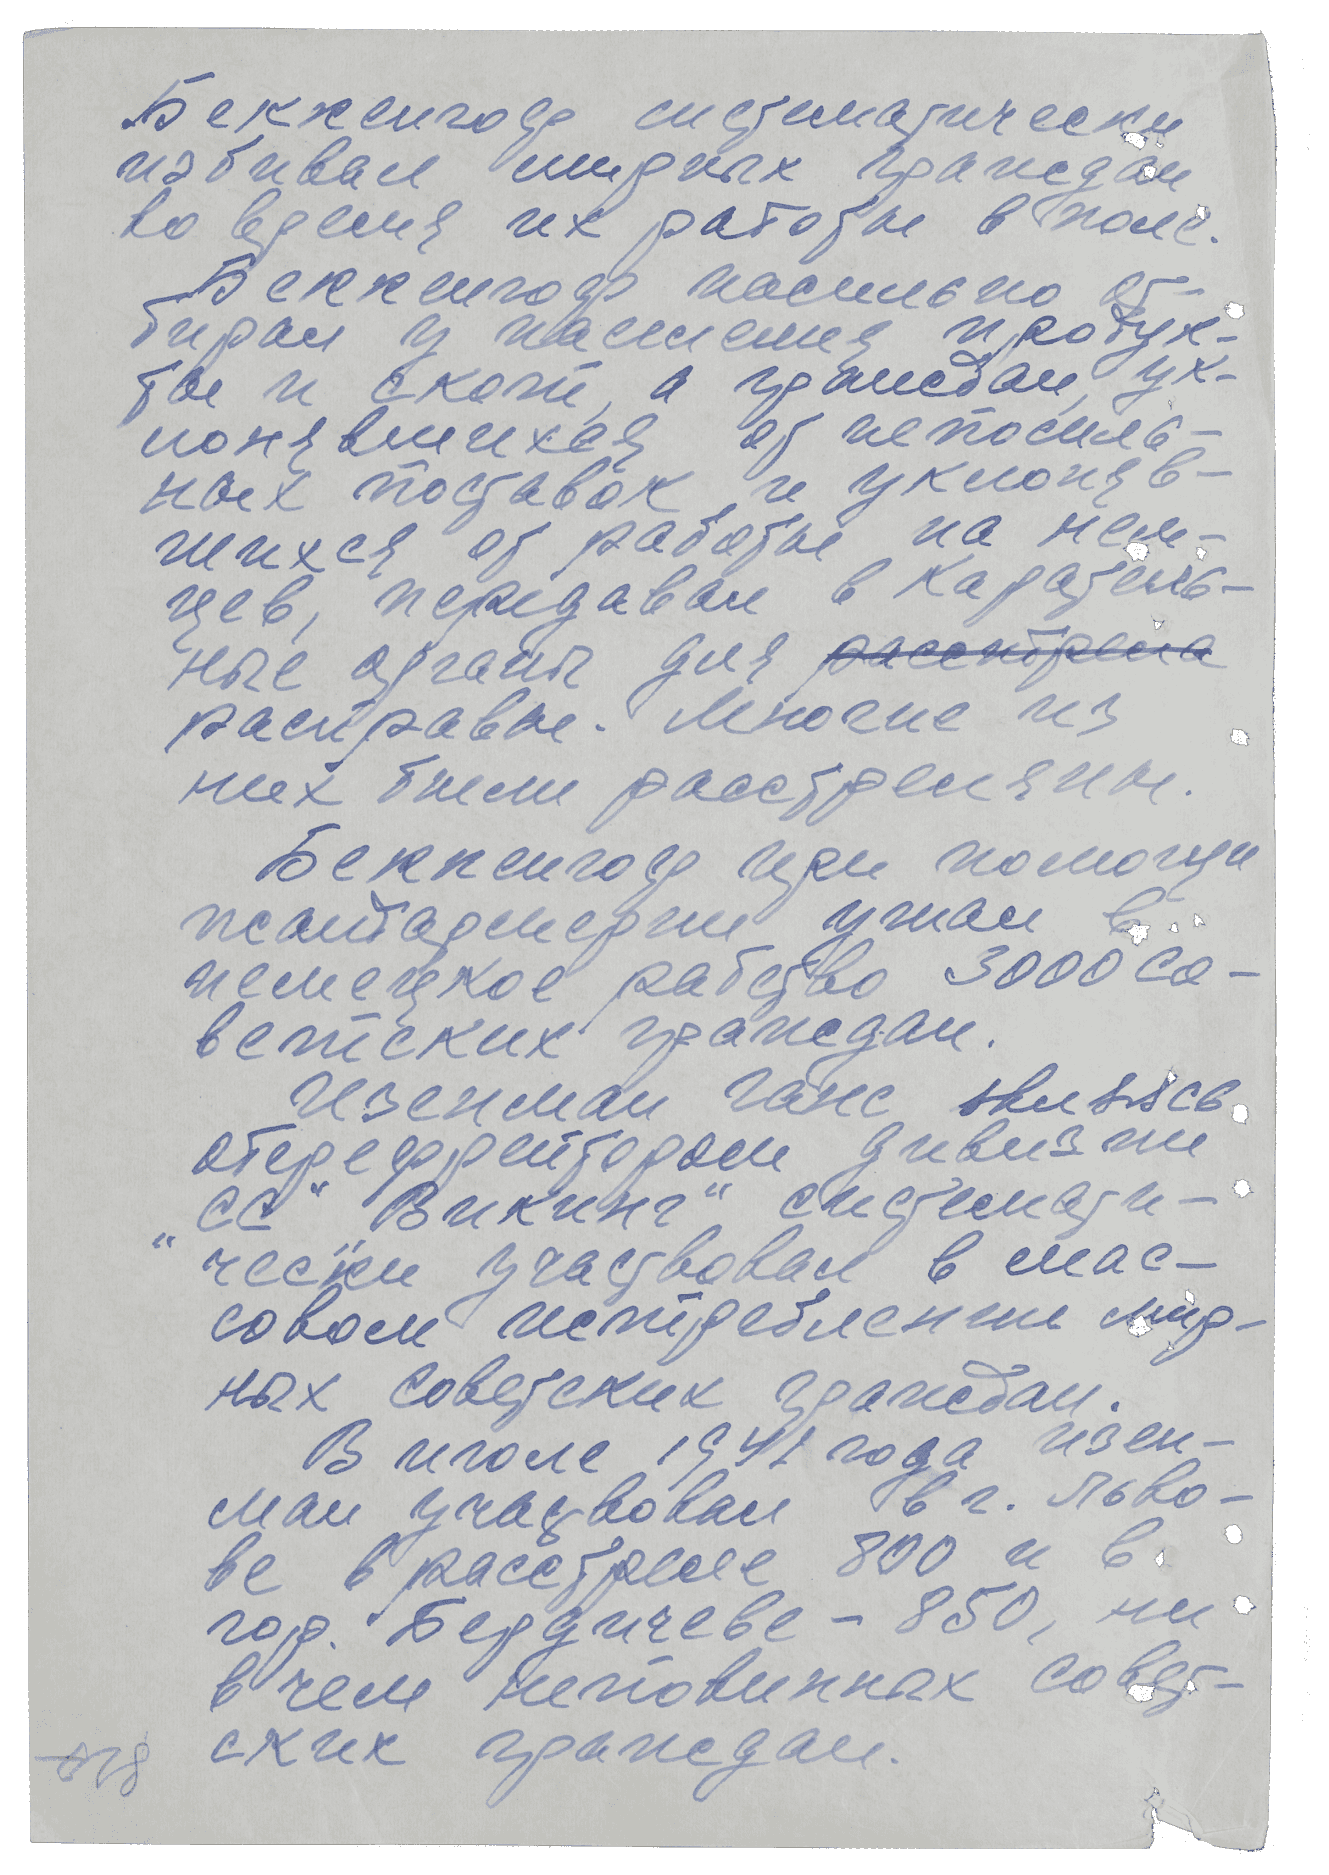 Беккенгоф систематически
избивал мирных граждан
во время их работы в поле.
Беккенгоф насильно от-
бирал у населения продук-
ты и скот, а граждан, ук-
лонявшихся от непосиль-
ных поставок и уклоняв-
шихся от работы на нем-
цев, передавал в каратель-
ные органы для расстрела
расправы. Многие из
них были расстреляны.
Беккенгоф при помощи
жандармерии угнал в
немецкое рабство 3000 со-
ветских граждан.
Изенман Ганс являясь
оберефрейтором дивизии
СС "Викинг" системати-
чески участвовал в мас-
совом истреблении мир-
ных советских граждан.
В июле 1941 года Изен-
ман участвовал в г. Льво-
ве в расстреле 800 и в
гор. Бердичеве - 850, ни
в чем неповинных совет-
ских граждан.